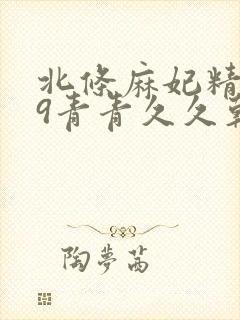 北條麻妃精
9青青久久
陶夢茜